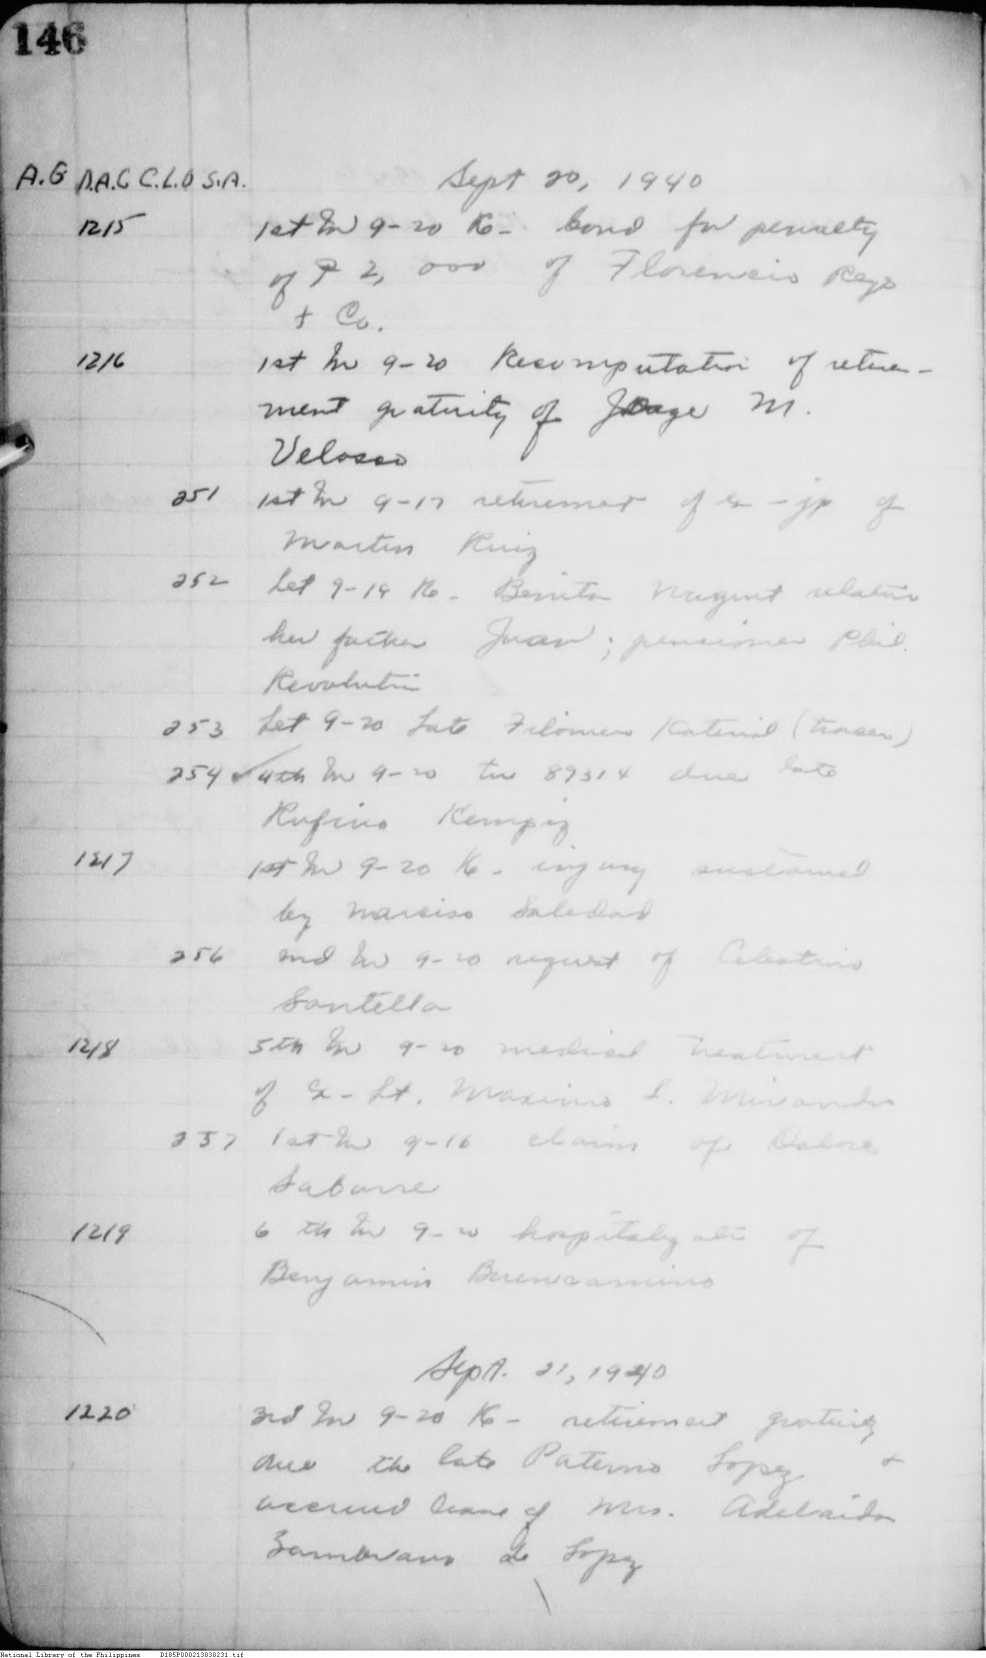 146
A.G D.A.G C.L.O S.A. Sept 20, 1940
1215 1st In 9-20 Re- bond for penalty
of ₱ 2,000 of Florencio Reyes
+ Co.
1216 1st In 9-20 Recomputation of retire-
ment gratuity of Jorge M.
Velosso
251 1st In 9-17 retirement of ex-jp of
Martin Ruiz
252 Let 9-19 Re- Benita relative
her father Juan; pensioner Phil.
Revolution
253 Let 9-20 Late Filomeno (tracer)
254 ✓ 4th In 9-20 tw 89314 due late
Rufino
1217 1st In 9-20 Re- injury sustained
by Narciso Soledad
256 2nd In 9-20 request of Celestino
Santella
1218 5th In 9-20 medical treatment
of Ex-Lt. Maximo S. Miranda
257 1st In 9-16 claim of
Sabarre
1219 6th In 9-20 of
Benjamin Buencamino
Sept. 21, 1940
1220 3rd In 9-20 Re- retirement gratuity
due the late Paterno Lopez +
accrued leave of Mrs. Adelaida
Zambrano de Lopez
National Library of the Philippines D185P000213030231.tif